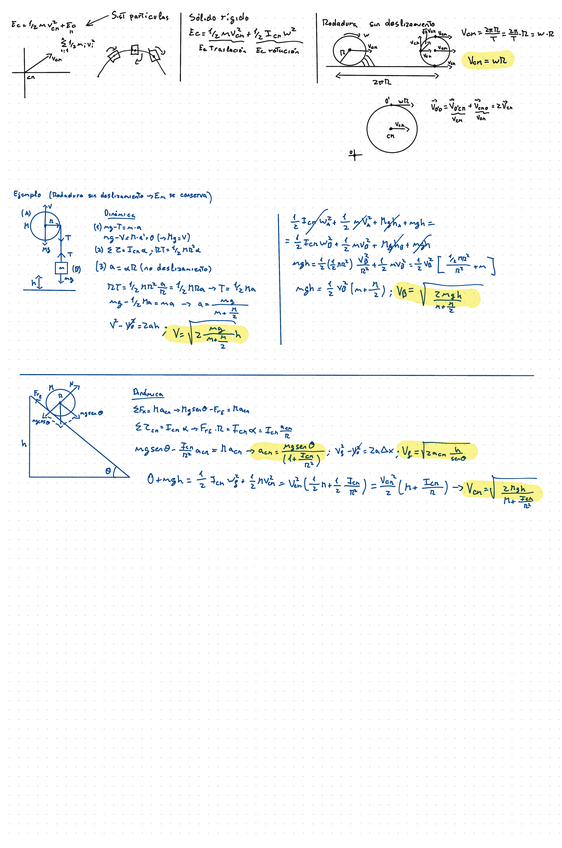 Sist partículas
Ec = 1/2 m v²cm + Eo
Σ 1/2 mᵢ vᵢ²
i=1
Vcm
cm
Sólido rígido
Ec = 1/2 m V²cm + 1/2 Icm w²
Ec Traslación Ec rotación
Rodadura sin deslizamiento
w
R
Vcm
2πR
Vcm = 2πR/T = 2π/T · R = w·R
Vcm = wR
O' wR
Vcm
cm
O
V⃗o'o = V⃗o'cm + V⃗cmo = 2V⃗cm
Vcm Vcm
Ejemplo (Rodadura sin deslizamiento → Em se conserva)
(A)
V
M
R
Mg
T
T
m (B)
mg
h
Dinámica
(1) mg-T = m·a
Mg-V = M·a = 0 (→ Mg = V)
(2) Σ τ = Icm α ; RT = 1/2 MR² α
(3) a = αR (no deslizamiento)
RT = 1/2 MR² a/R = 1/2 MRa → T = 1/2 Ma
mg - 1/2 Ma = ma → a = mg/(m + M/2)
V² - V₀² = 2ah ; V = √(2 mg/(m + M/2) h)
1/2 Icm w²A + 1/2 m V²A + MghA + mgh =
= 1/2 Icm w²B + 1/2 m V²B + MghB + mgh
mgh = 1/2 (1/2 MR²) V²B/R² + 1/2 m V²B = 1/2 V²B [1/2 MR²/R² + m]
mgh = 1/2 V²B (m + M/2) ; VB = √(2mgh/(m + M/2))
Frs
M
N
R
mgcosθ
mgsenθ
h
θ
Dinámica
ΣFx = M acm → Mgsenθ - Frs = M acm
Σ τcm = Icm α → Frs · R = Icm α = Icm acm/R
mgsenθ - Icm/R² acm = M acm → acm = Mgsenθ/(1 + Icm/R²) ; V²f - V²o = 2aΔx ; Vf = √(2acm h/senθ)
0 + mgh = 1/2 Icm w²f + 1/2 M V²cm = V²cm (1/2 M + 1/2 Icm/R²) = V²cm/2 (M + Icm/R) → Vcm = √(2Mgh/(M + Icm/R²))